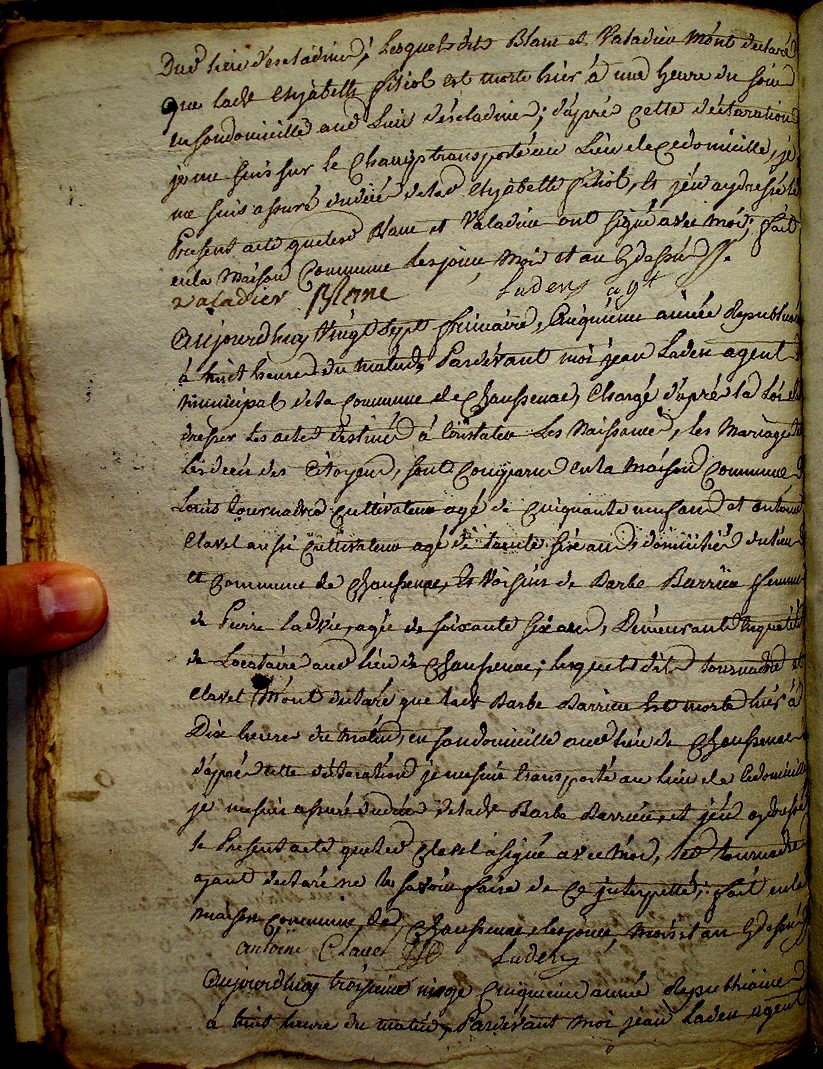 Dud lieu d'escladine; lesquels dits Blanc et Valadier m'ont declaré
que lade Elizabette Filiol est morte hier à une heure du soir
en son domicille aud Lieu d'escladine; d'après cette déclaration
je me suis sur le Champ transporté au Lieu de ce domicille, je
me suis assuré du décé de lad Elizabette Filiol, et j'en ay dressé le
Présent acte que lesd Blanc et Valadier ont signé avec moi, fait
en la Maison Commune les jour, moi et an q dessus
valadier Blanc Laden agt
Aujourdhuy vingt sept frimaire, Cinquième année Republicaine
à huit heures du matin, Pardevant moi jean Laden agent
Municipal de la Commune de Chaussenac, Chargé d'après la Loi de
dresser les actes destinés à Constater Les Naissances, les Mariages et
les décés des Citoyens, sont comparu en la Maison Commune
Louis tournadre Cultivateur agé de Cinquante un ans et antoine
Clavel aussi Cultivateur agé de trente six ans, domiciliés du lieu
et Commune de Chaussenac, les voisins de Barbe Barrière femme
de Pierre ladvie, agée de soixante six ans, Demeurante en qualité
de Locataire aud lieu de Chaussenac; lesquels dits tournadre et
Clavel M'ont declaré que lade Barbe Barriere est morte hier à
Dix heures du matin, en son domicille aud lieu de Chaussenac
d'après cette déclaration je me suis transporté au lieu de ce domicille
je me suis assuré du décé de lade Barbe Barrière, et j'en ay dressé
le Présent acte que led Clavel a signé avec Moi, led tournadre
ayant declaré ne le savoir faire de ce interpellé; fait en la
maison commune de Chaussenac les jour, mois et an q dessus
antoine Clavel Laden
Aujourdhuy troisieme nivose Cinquieme année Republicaine
à huit heure du matin, Pardevant Moi jean Laden agent